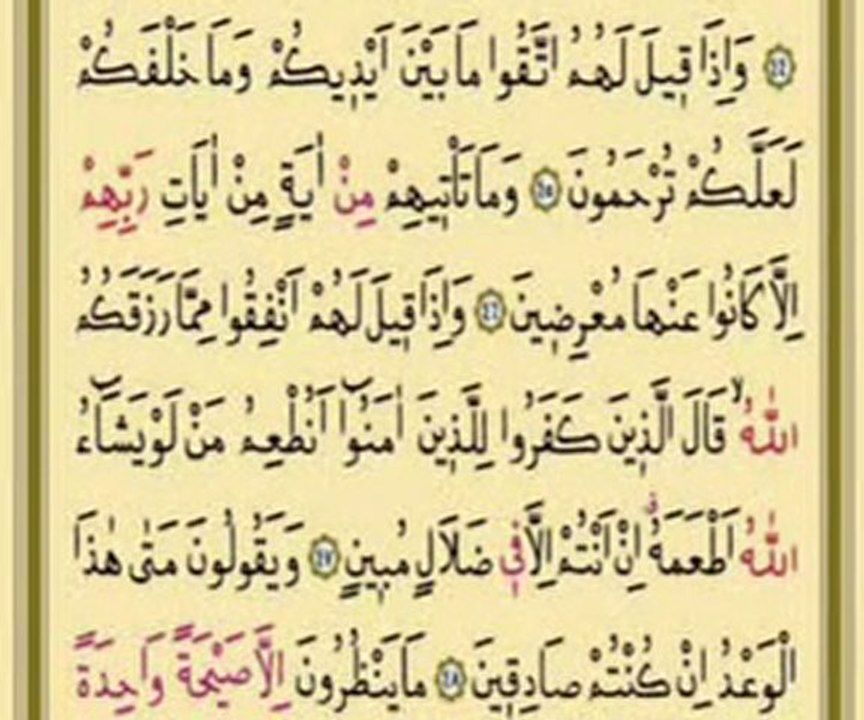 وَاِذَا قٖيلَ لَهُمُ اتَّقُوا مَا بَيْنَ اَيْدٖيكُمْ وَمَا خَلْفَكُمْ
لَعَلَّكُمْ تُرْحَمُونَ ﴿٤٥﴾ وَمَا تَاْتٖيهِمْ مِنْ اٰيَةٍ مِنْ اٰيَاتِ رَبِّهِمْ
اِلَّا كَانُوا عَنْهَا مُعْرِضٖينَ ﴿٤٦﴾ وَاِذَا قٖيلَ لَهُمْ اَنْفِقُوا مِمَّا رَزَقَكُمُ
اللّٰهُۙ قَالَ الَّذٖينَ كَفَرُوا لِلَّذٖينَ اٰمَنُٓوا اَنُطْعِمُ مَنْ لَوْ يَشَٓاءُ
اللّٰهُ اَطْعَمَهُࣗ اِنْ اَنْتُمْ اِلَّا فٖي ضَلَالٍ مُبٖينٍ ﴿٤٧﴾ وَيَقُولُونَ مَتٰى هٰذَا
الْوَعْدُ اِنْ كُنْتُمْ صَادِقٖينَ ﴿٤٨﴾ مَا يَنْظُرُونَ اِلَّا صَيْحَةً وَاحِدَةً